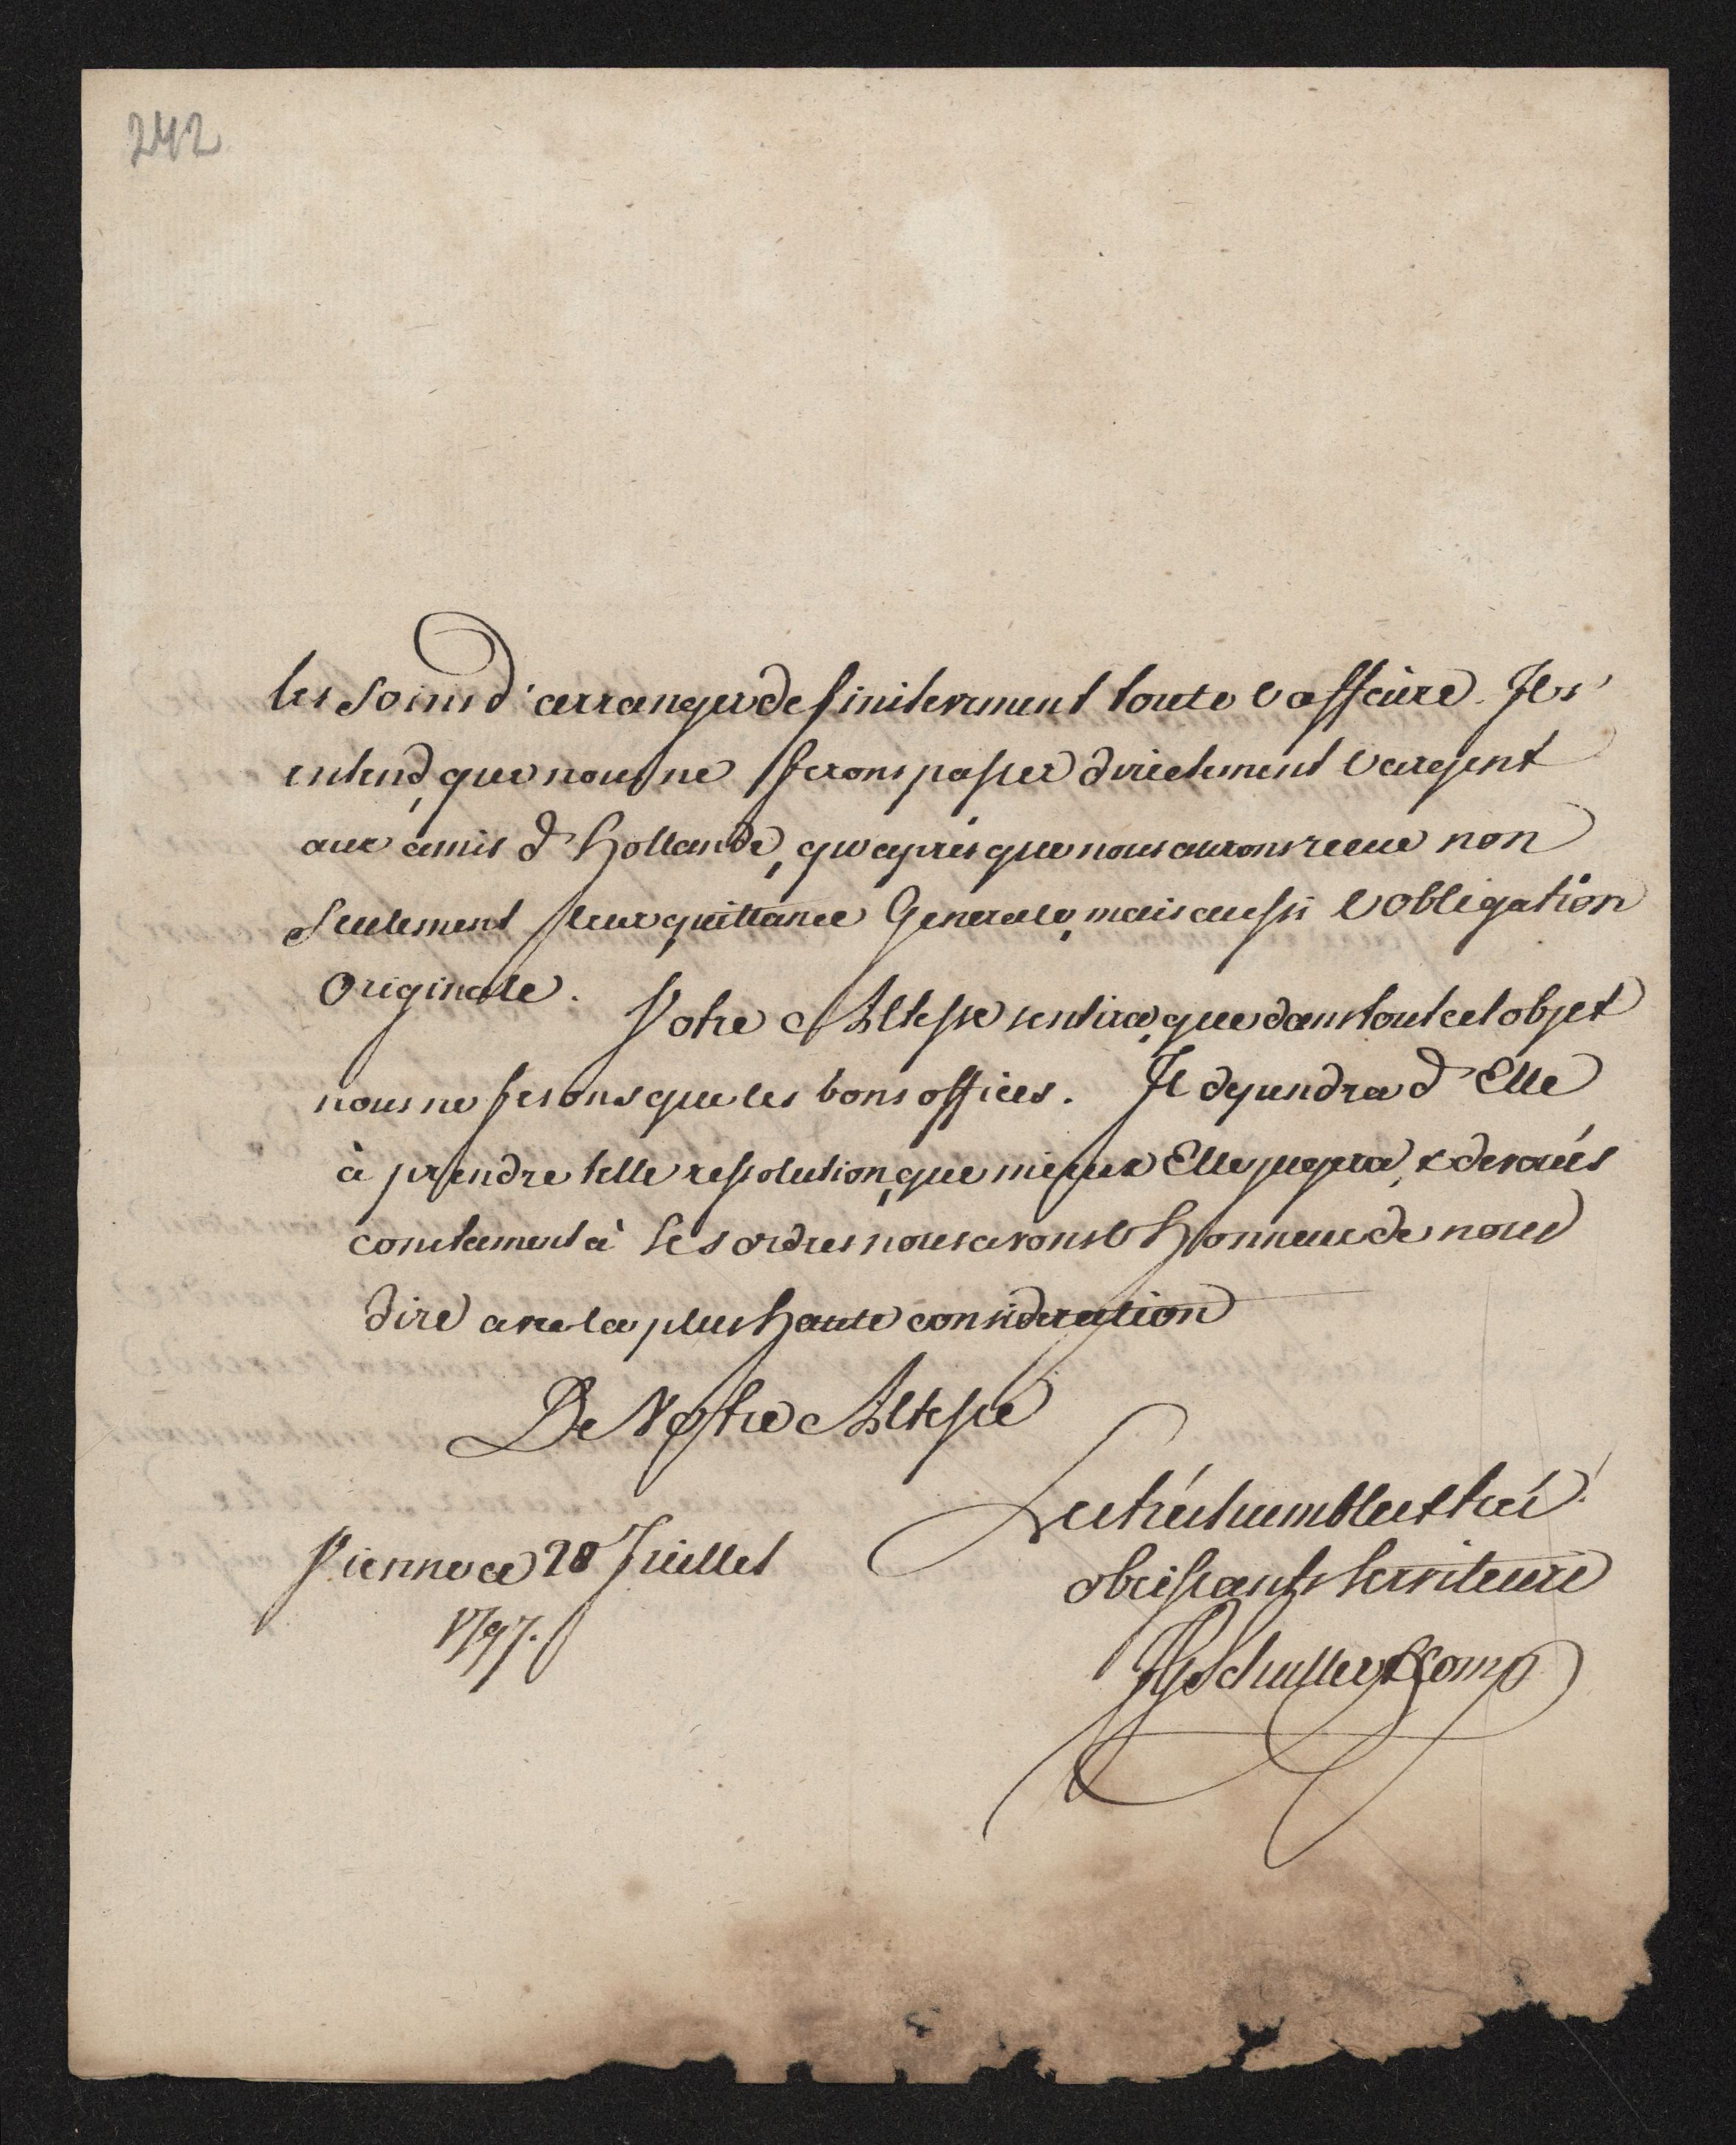 242
les soins d'arranger definitivement toute l'affaire. Il s'
entend, que nous ne ferons passer directement l'argent
aux amis d'Hollande, qu'après que nous aurons recue non
seulement leur quittance Generale, mais aussi l'obligation
Originale.
Votre Altesse sentira, que dans tout cet objet
nous ne fesons que les bons offices. Il dependra d'Elle
à prendre telle ressolution, que mieux Elle jugera, & devoués
constament à Ses ordres nous avons l'Honneur de nous
dire avec la plus haute consideration
De Votre Altesse
Les trés humbles & trés
obeissants Serviteurs
Vienne ce 28 Juillet
1797.
Schuller & Comp